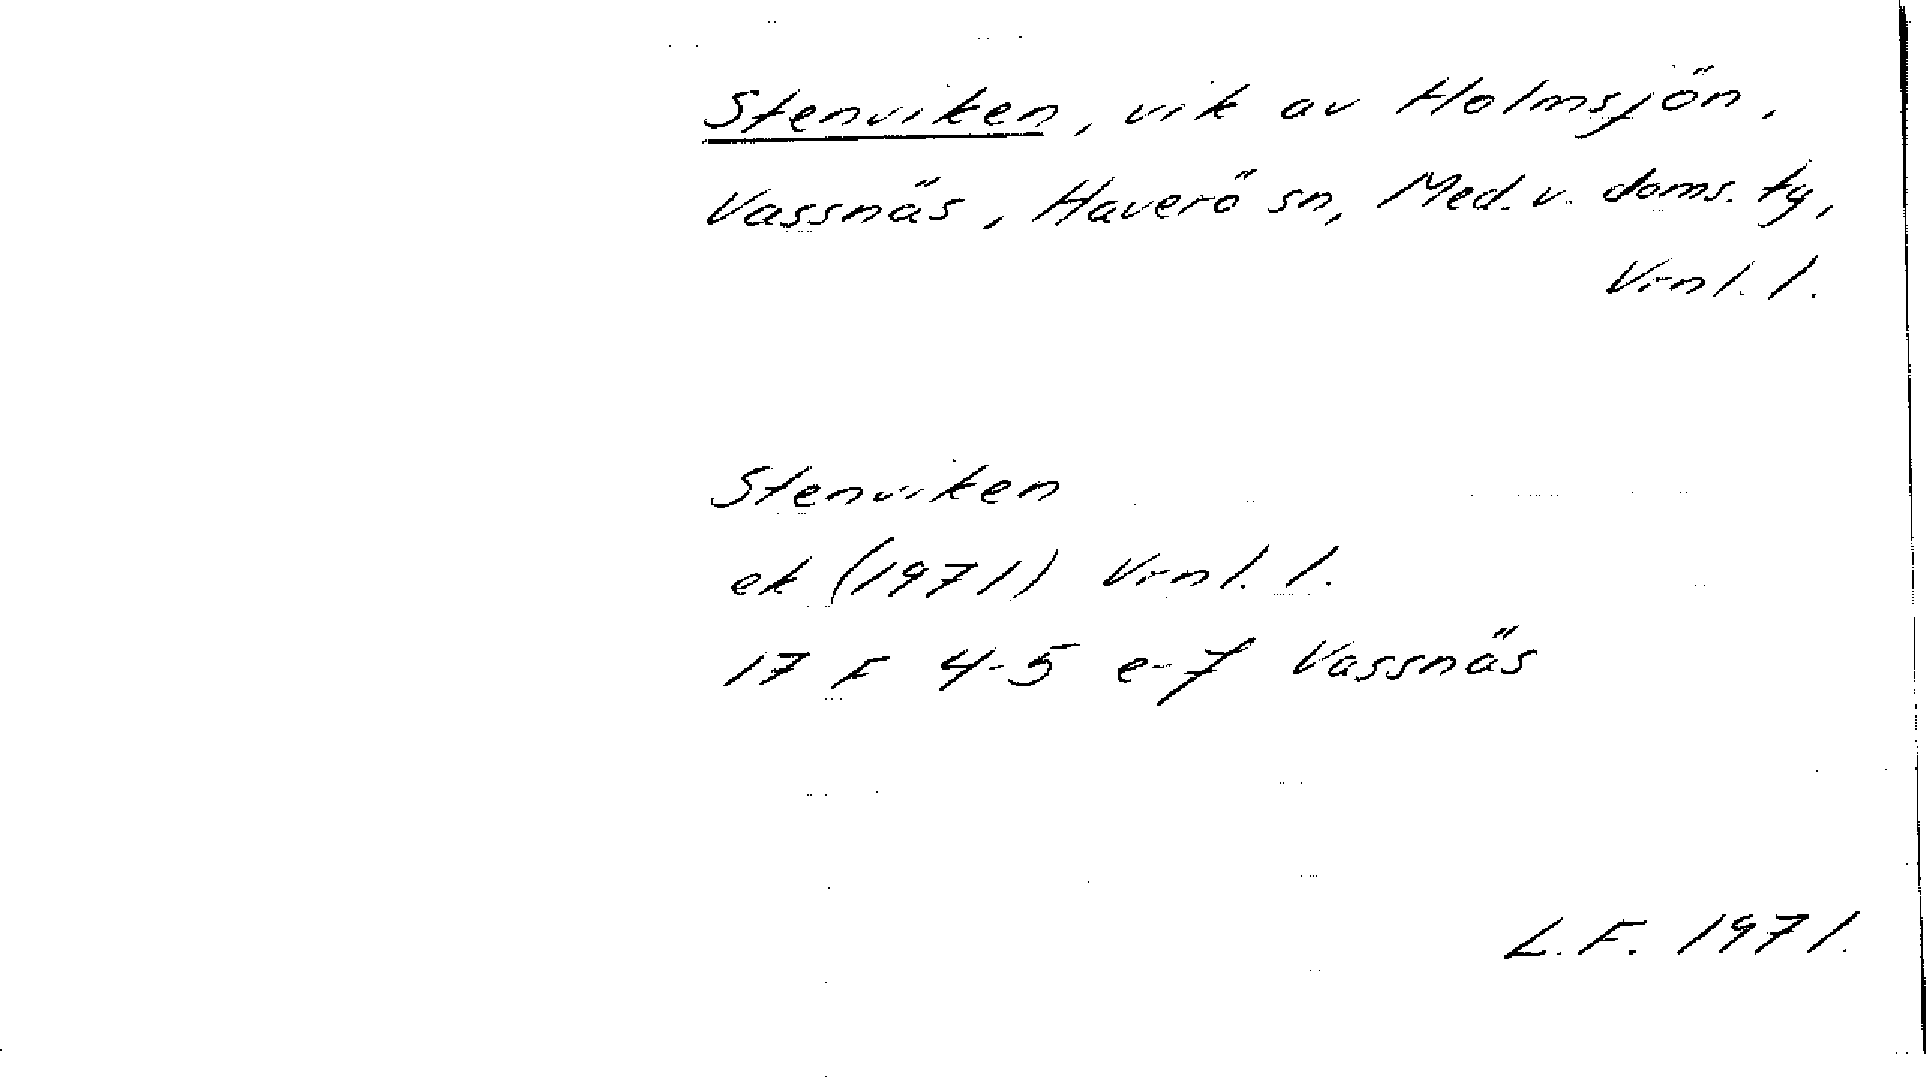 Stenviken, vik av Holmsjön,
Vassnäs, Haverö sn, Med. v. doms. tg,
Vrnl. l.
Stenviken
ek (1971) Vrnl. l.
17 F 4-5 e-f Vassnäs
L.F. 1971.